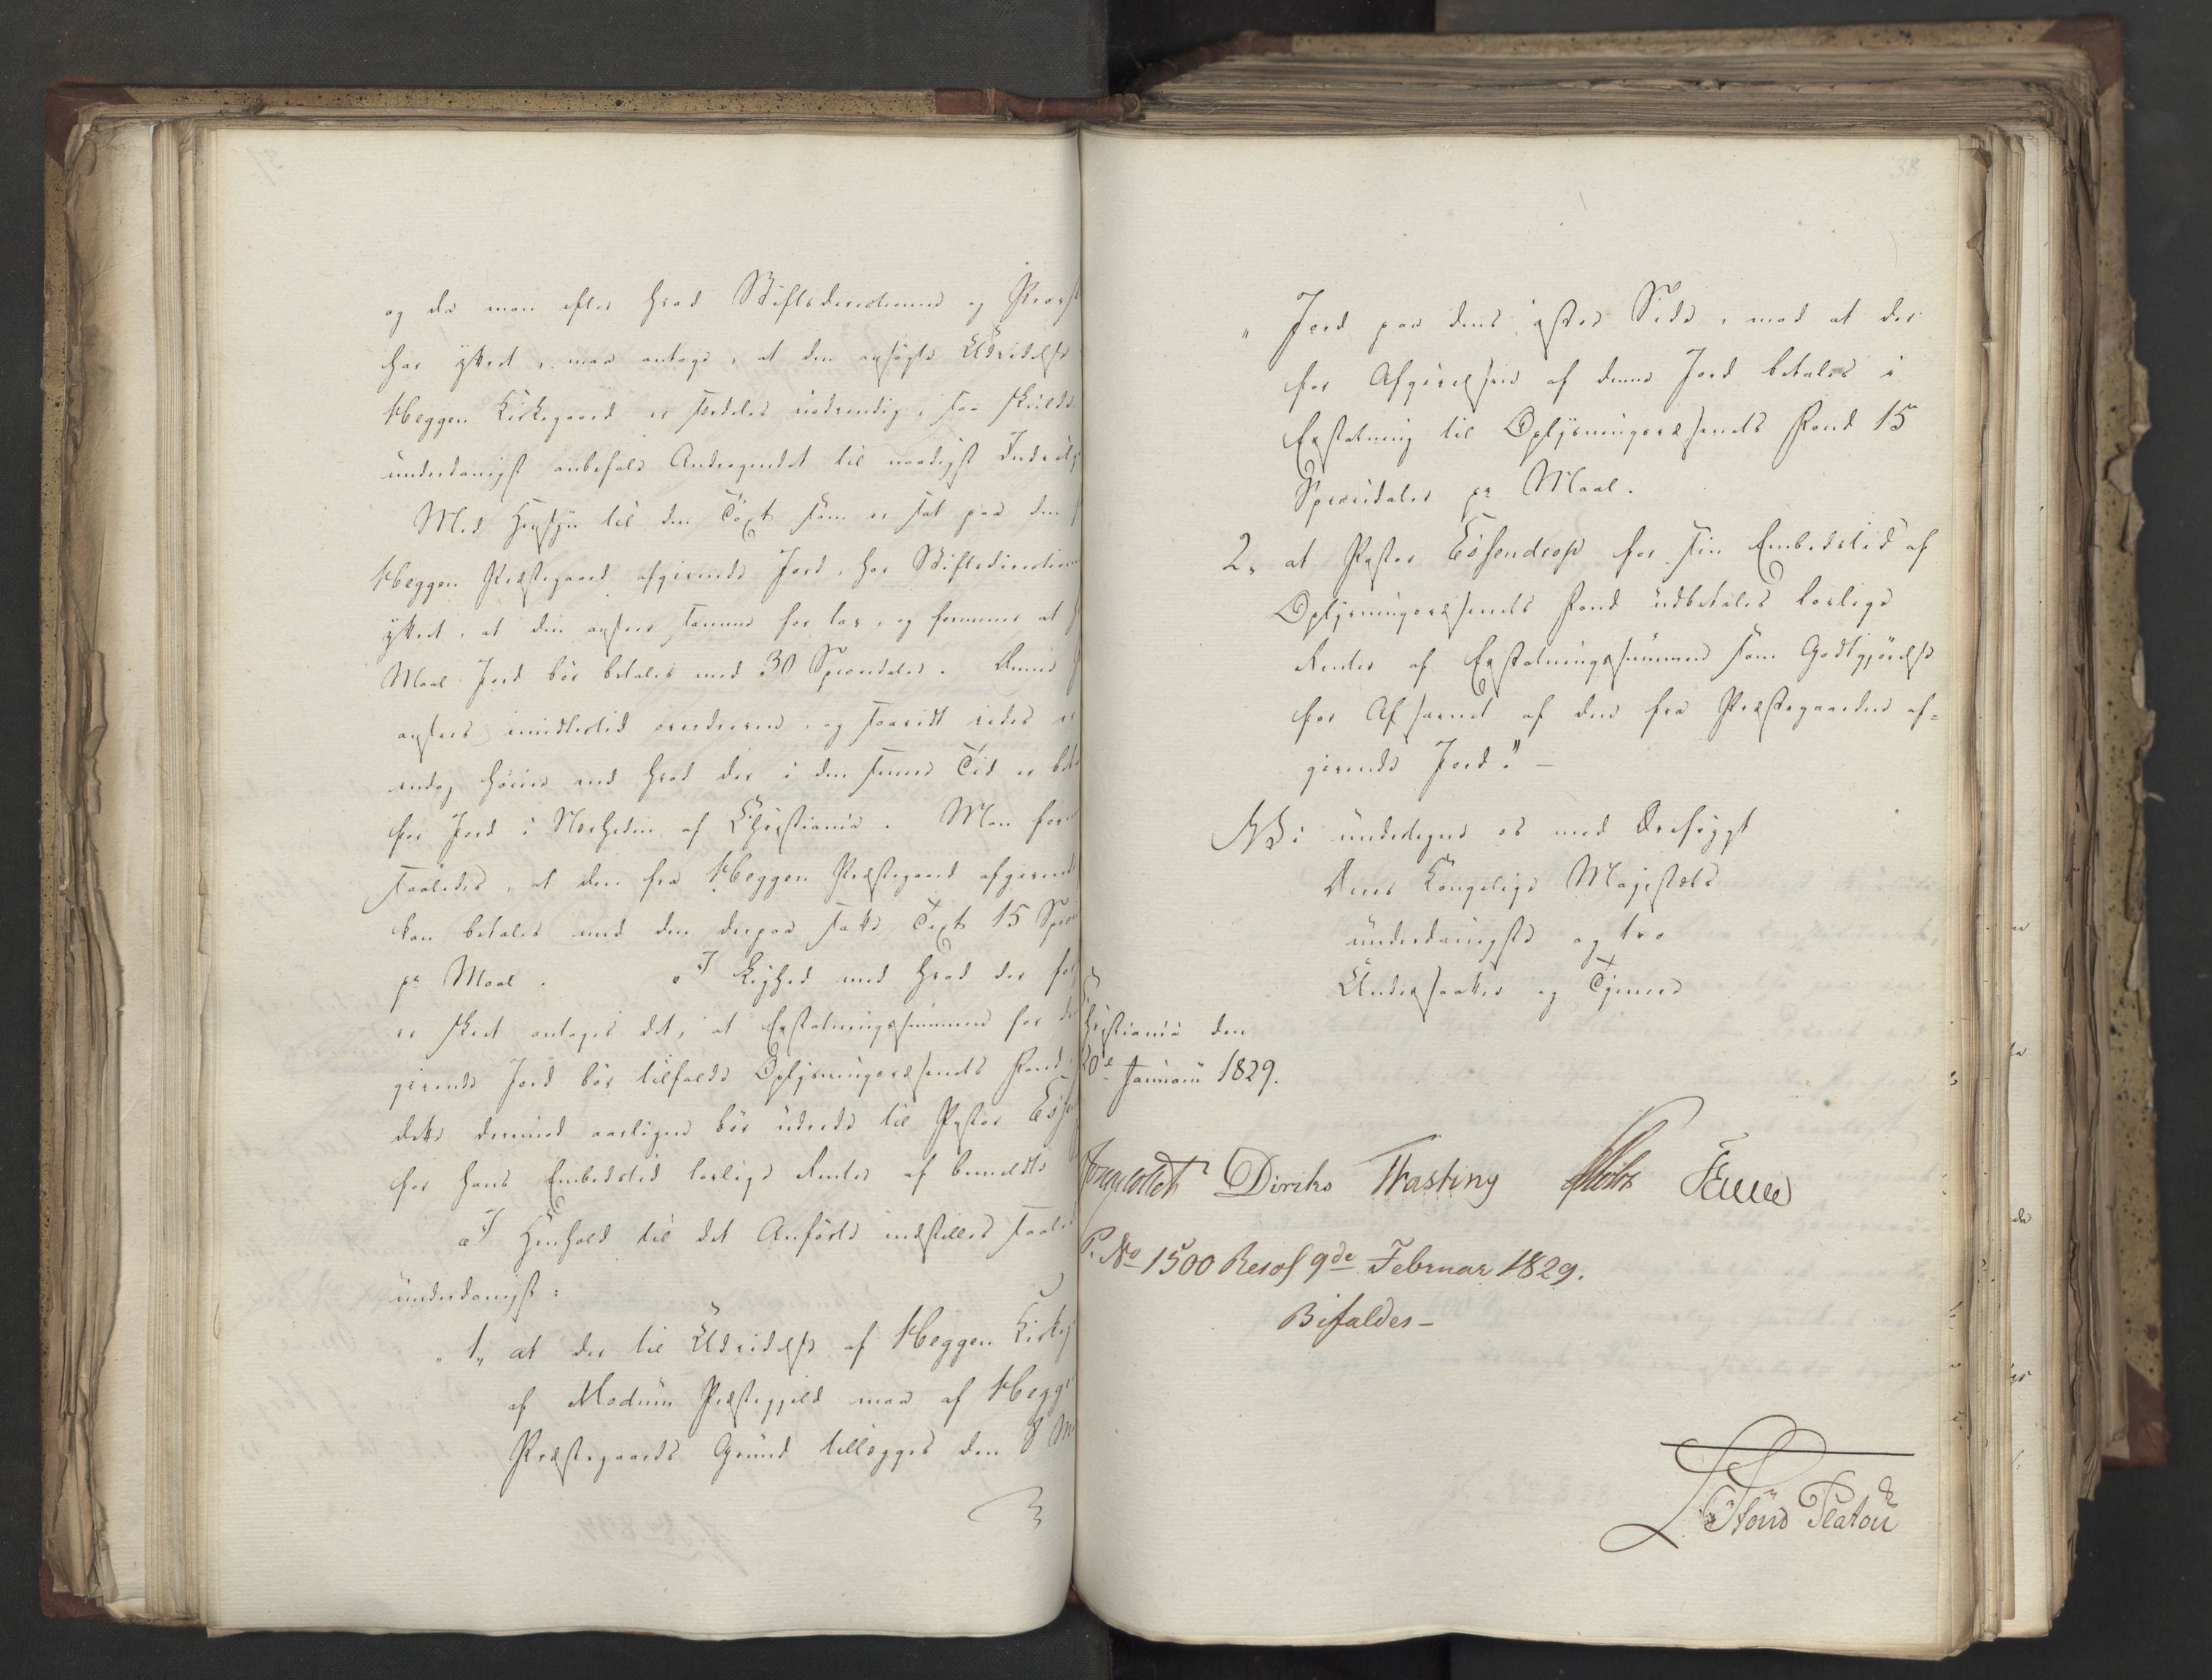 og da man efter hvad Stiftsdirectionen og Provst
har yttret, maa antage, at den ansøgte Udvidelse
Heggen Kirkegaard er særdeles nødvendig, saa skulde
underdanigst anbefale Andragendet til naadigst Indvilg
Med Hensyn til den Taxt som er sat paa den
Heggen Præstegaard afgivende Jord, har Stiftsdirection
yttret, at den ansees samme for lav, og formener at
Maal Jord bør betales med 30 Speciedaler. Denne
ansees imidlertid overdreven, og saavidt vides er
endog høiere end hvad der i den senere Tid er beta
for Jord i Nærheden af Christiania. Man form
saaledes, at den fra Heggen Præstegaard afgivend
kan betales med den derpaa satte Taxt 15 Spec
pr Maal. I Liighed med hvad der før
er skeet antages det, at Erstatningssummen for den
givende Jord bør tilfalde Oplysningsvæsenets Fond
dette derimod aarligen bør udrede til Pastor Essen
for hans Embedstid lovlige Renter af bemeldte
I Henhold til det Anførte indstilles saale
underdanigst:
" 1, at der til Udvidelse af Heggen Kirkeg
af Modum Præstegjeld maa af Hegge
Præstegaards Grund tillægges den 8 M
38
" Jord paa dens østre Side, mod at der
for Afgivelsen af denne Jord betales i
Erstatning til Oplysningsvæsenets Fond 15
Speciedaler pr Maal.
2, at Pastor Essendrop for sin Embedstid af
Oplysningsvæsenets Fond udbetales lovlige
Renter af Erstatningssummen som Godtgjørelse
for Afsavnet af den fra Præstegaarden af=
givende Jord." —
Vi undertegne os med Ærefrygt
Deres Kongelige Majestæts
underdanigste og tro
Undersaatter og Tjenere
Christiania den
20de Januarii 1829.
Jonas Collett Diriks Krasting
P. No 1500 Resol 9de Februar 1829.
Bifaldes —
Stoud Platou